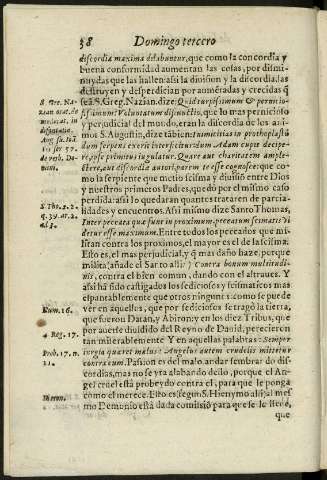 58 Domingo tercero
discordia maxima delabuntur, que como la concordia y
buena conformidad aumentan las cosas, por disminuydas
que las hallen: assi la diuision y la discordia, las
destruyen y desperdician por acrecentadas y crecidas q
sea. S. Greg. Nazian. dize: Quid turpissimum & perniciosissimum?
Voluntatum disiunctio, que lo mas pernicioso
y perjudicial del mundo, eran la discordia de los animos
S. Augustin, dize tābien: Inimicitias in prothoplastū
dum serpens exerit interficiturdum Adam cupit decipere,
ipse primitus iugulatur. Quare aut charitatem amplectere,
aut discordia autorē, parem te esse cognosce: que como
la serpiente que metio scisma y diuisiō entre Dios
y nuestros primeros Padres, quedò por el mismo caso
perdida: assi lo quedaran quantos trataren de parcialidades
y encuentros. Assi mismo dize Santo Thomas,
Inter peccata quæ sunt in proximum, peccatum scismatis videtur
esse maximum. Entre todos los peccados que militan
contra los proximos, el mayor es el de la scisma.
Esto es, el mas perjudicial, y q̄ mas daño haze, porque
milita (añade el Santo alli) Contra bonum multitudinis,
contra el biē comun, dando con el al traues. Y
assi ha sido castigados los sediciosos y scismaticos mas
espantablemente que otros ningunos: como se puede
ver en aquellos, que por sediciosos se tragò la tierra,
que fueron Datan, y Abiron; y en los diez Tribus, que
por auerse diuidido del Reyno de Dauid, perecieron
tan miserablemente. Y en aquellas palabras: Semper
iurgia quæret malus: Angelus autem crudelis mittetur
contra eum. Passion es del malo andar sembrādo discordias,
mas no se yra alabando dello, porque el Angel
cruel està proueydo contra el, para que le ponga
como el merece. Esto es (segun S. Hieronymo alli) al mesmo
Demonio està dada comissiō para que se le lleuè,
que
S. Gre. Nazian.
orat. de
moderat. in
disputatio.
Aug. su.
ser. 57.
de verb. Domini.
S. Tho. 2. 2.
q. 39. ar. 2.
ad 3.
Num. 16.
4 Reg. 17.
Prob. 17. n.
11.
Hieron.